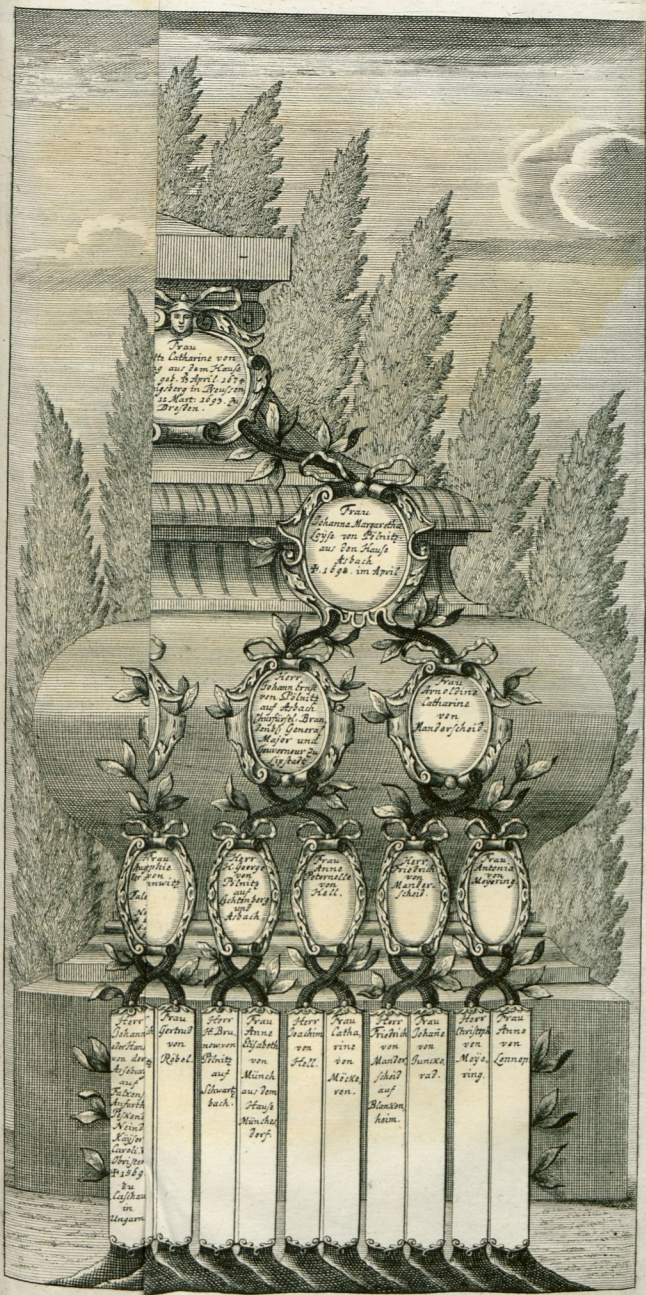 Frau
Catharine von
aus dem Hause
geb. 13 April. 1674
in Preussen
12 Mart. 1693. zu
Dresden.
Frau
Johanna Margaretha
Loyse von Pölnitz
aus den Hause
Asbach
✠. 1698. im April
Herr
Johann Ernst
von Pölnitz
auf Asbach
Churfürsl. Bran
denbl. General
Major und
Gouverneur zu
Lipstadt
Frau
Arnoldine
Catharine
von
Manderscheid.
Frau
Sophie
von
Herr
H. George
von
Pölnitz
auf
Lichtenberg
und
Asbach.
Frau
Anne
Peternelle
von
Hell.
Herr
Friedrich
von
Mander,
scheid.
Frau
Antonia
von
Meyering.
Herr
Johann
von der
Asseburg
auf
Neind
Käyser
Caroli. V
Obrister
✠ 1569
zu
Caschau
in
Ungarn
Frau
Gertrud
von
Röbel.
Herr
H. Bru,
now. von
Pölnitz
auf
Schwartz
bach.
Frau
Anne
Elisabeth
von
Münch
aus dem
Hause
Münches
dorf.
Herr
Joachim
von
Hell.
Frau
Catha,
rine
von
Möcke,
ren.
Herr
Friedrich
von
Mander
scheid
auf
Blanken
heim.
Frau
Johañe
von
Juncke,
rad.
Herr
Christoph
von
Meye,
ring.
Frau
Anne
von
Lennep.